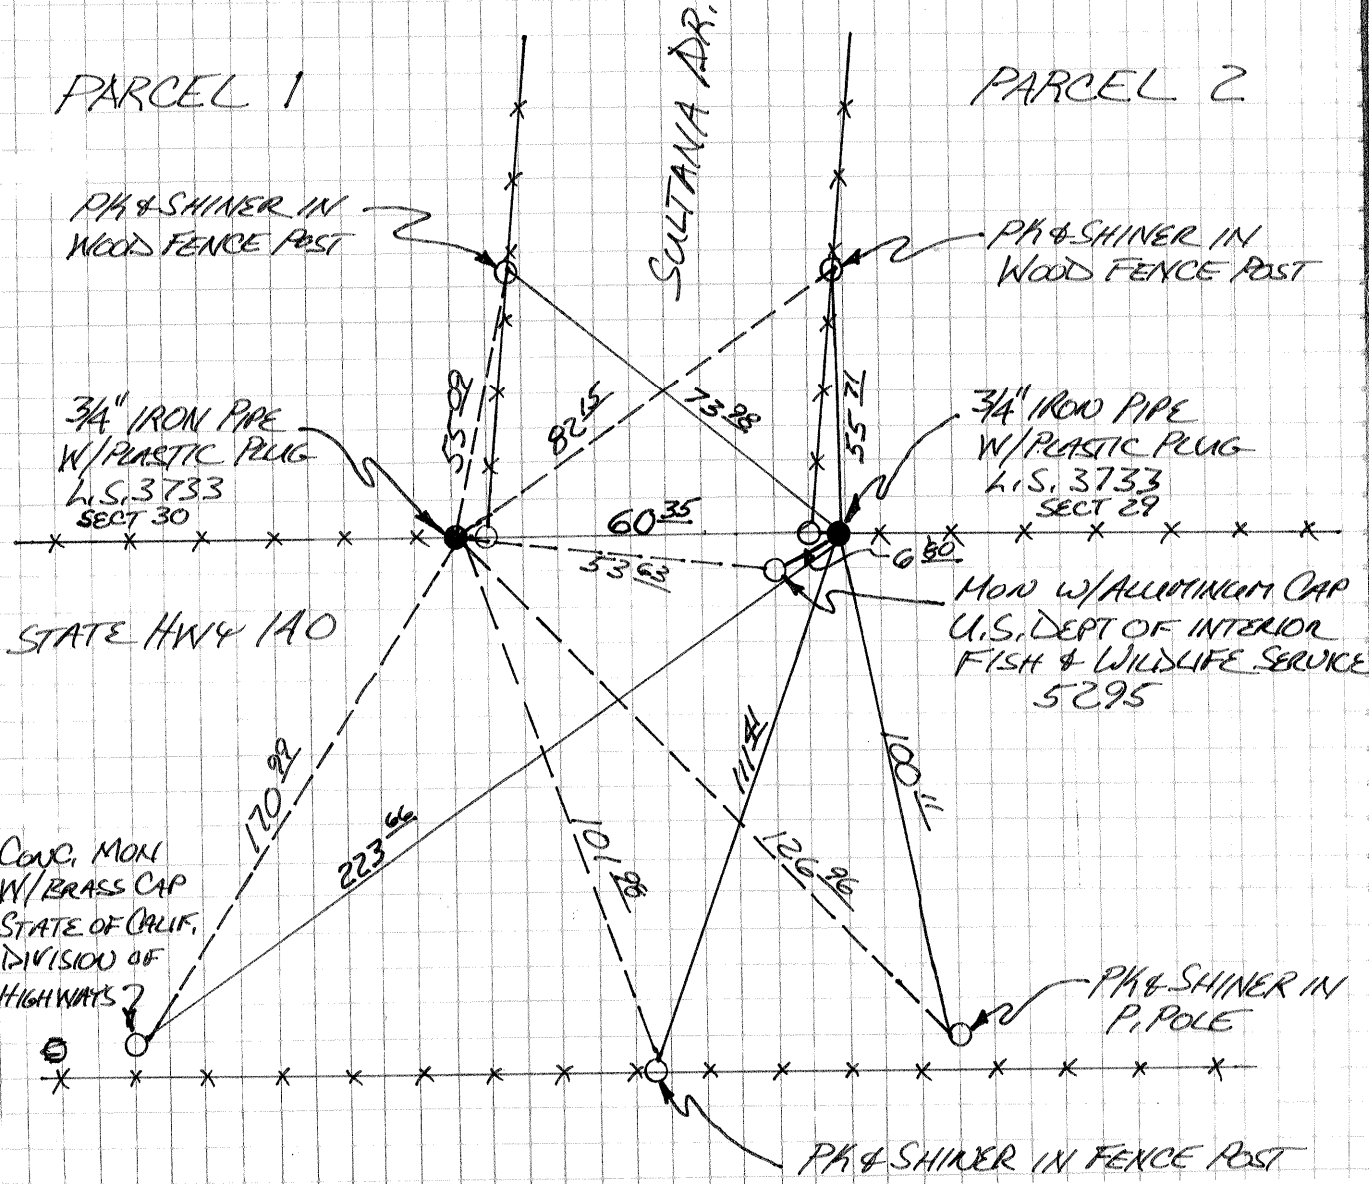 SULTANA DR.
PARCEL 1
PARCEL 2
PK & SHINER IN
WOOD FENCE POST
PK & SHINER IN
WOOD FENCE POST
55 09
82 15
73 98
55 71
3/4" IRON PIPE
W/PLASTIC PLUG
L.S. 3733
SECT 30
3/4" IRON PIPE
W/PLASTIC PLUG
L.S. 3733
SECT 29
60 35
53 63
6 80
MON W/ALUMINUM CAP
U.S. DEPT OF INTERIOR
FISH & WILDLIFE SERVICE
5295
STATE HWY 140
170 99
223 66
101 98
111 41
126 96
100 11
CONC. MON
W/BRASS CAP
STATE OF CALIF.
DIVISION OF
HIGHWAYS
PK & SHINER IN
P. POLE
PK & SHINER IN FENCE POST